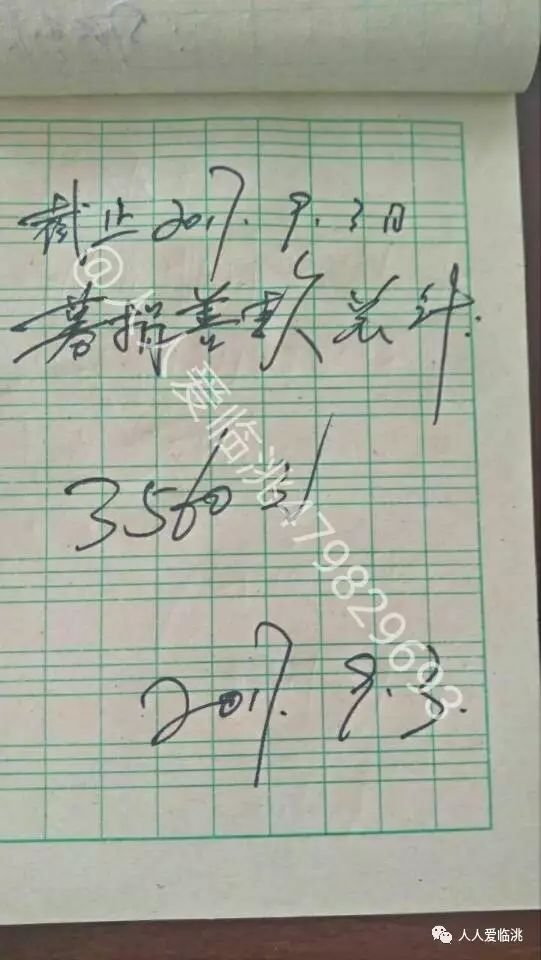 截止2017.9.3日
募捐善款总计.
3560
2017. 9.3.
@人人爱临洮:179829693
人人爱临洮